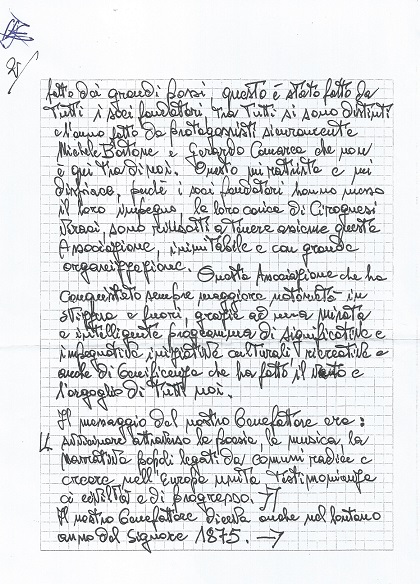 fatto dai grandi Soci, questo è stato fatto da
Tutti i soci fondatori tra Tutti si sono distinti
e l'anno fatto da protagonisti sicuramente
Michele Bortone e Gerardo Comarca che non
è qui tra di noi. Questo mi rattrista e mi
dispiace, perché i soci fondatori hanno messo
il loro impegno, la loro carica di
veraci, sono riusciti a tenere assieme questa
Associazione, inimitabile e con grande
organizzazione. Questa Associazione che ha
conquistato sempre maggiore notorietà in
Svizzera e fuori, grazie ad una mirata
e intelligente programma di significative e
impegnative iniziative culturali ricreative e
anche di beneficenza che ha fatto il vanto e
l'orgoglio di Tutti noi.
Il messaggio del nostro Benefattore era:
avvicinare attraverso la poesia, la musica, la
narrativa popoli legati da comuni radici e
creare nell'Europa unita Testimonianza
di civiltà e di progresso.
Il nostro Benefattore diceva anche nel lontano
anno del Signore 1875. →